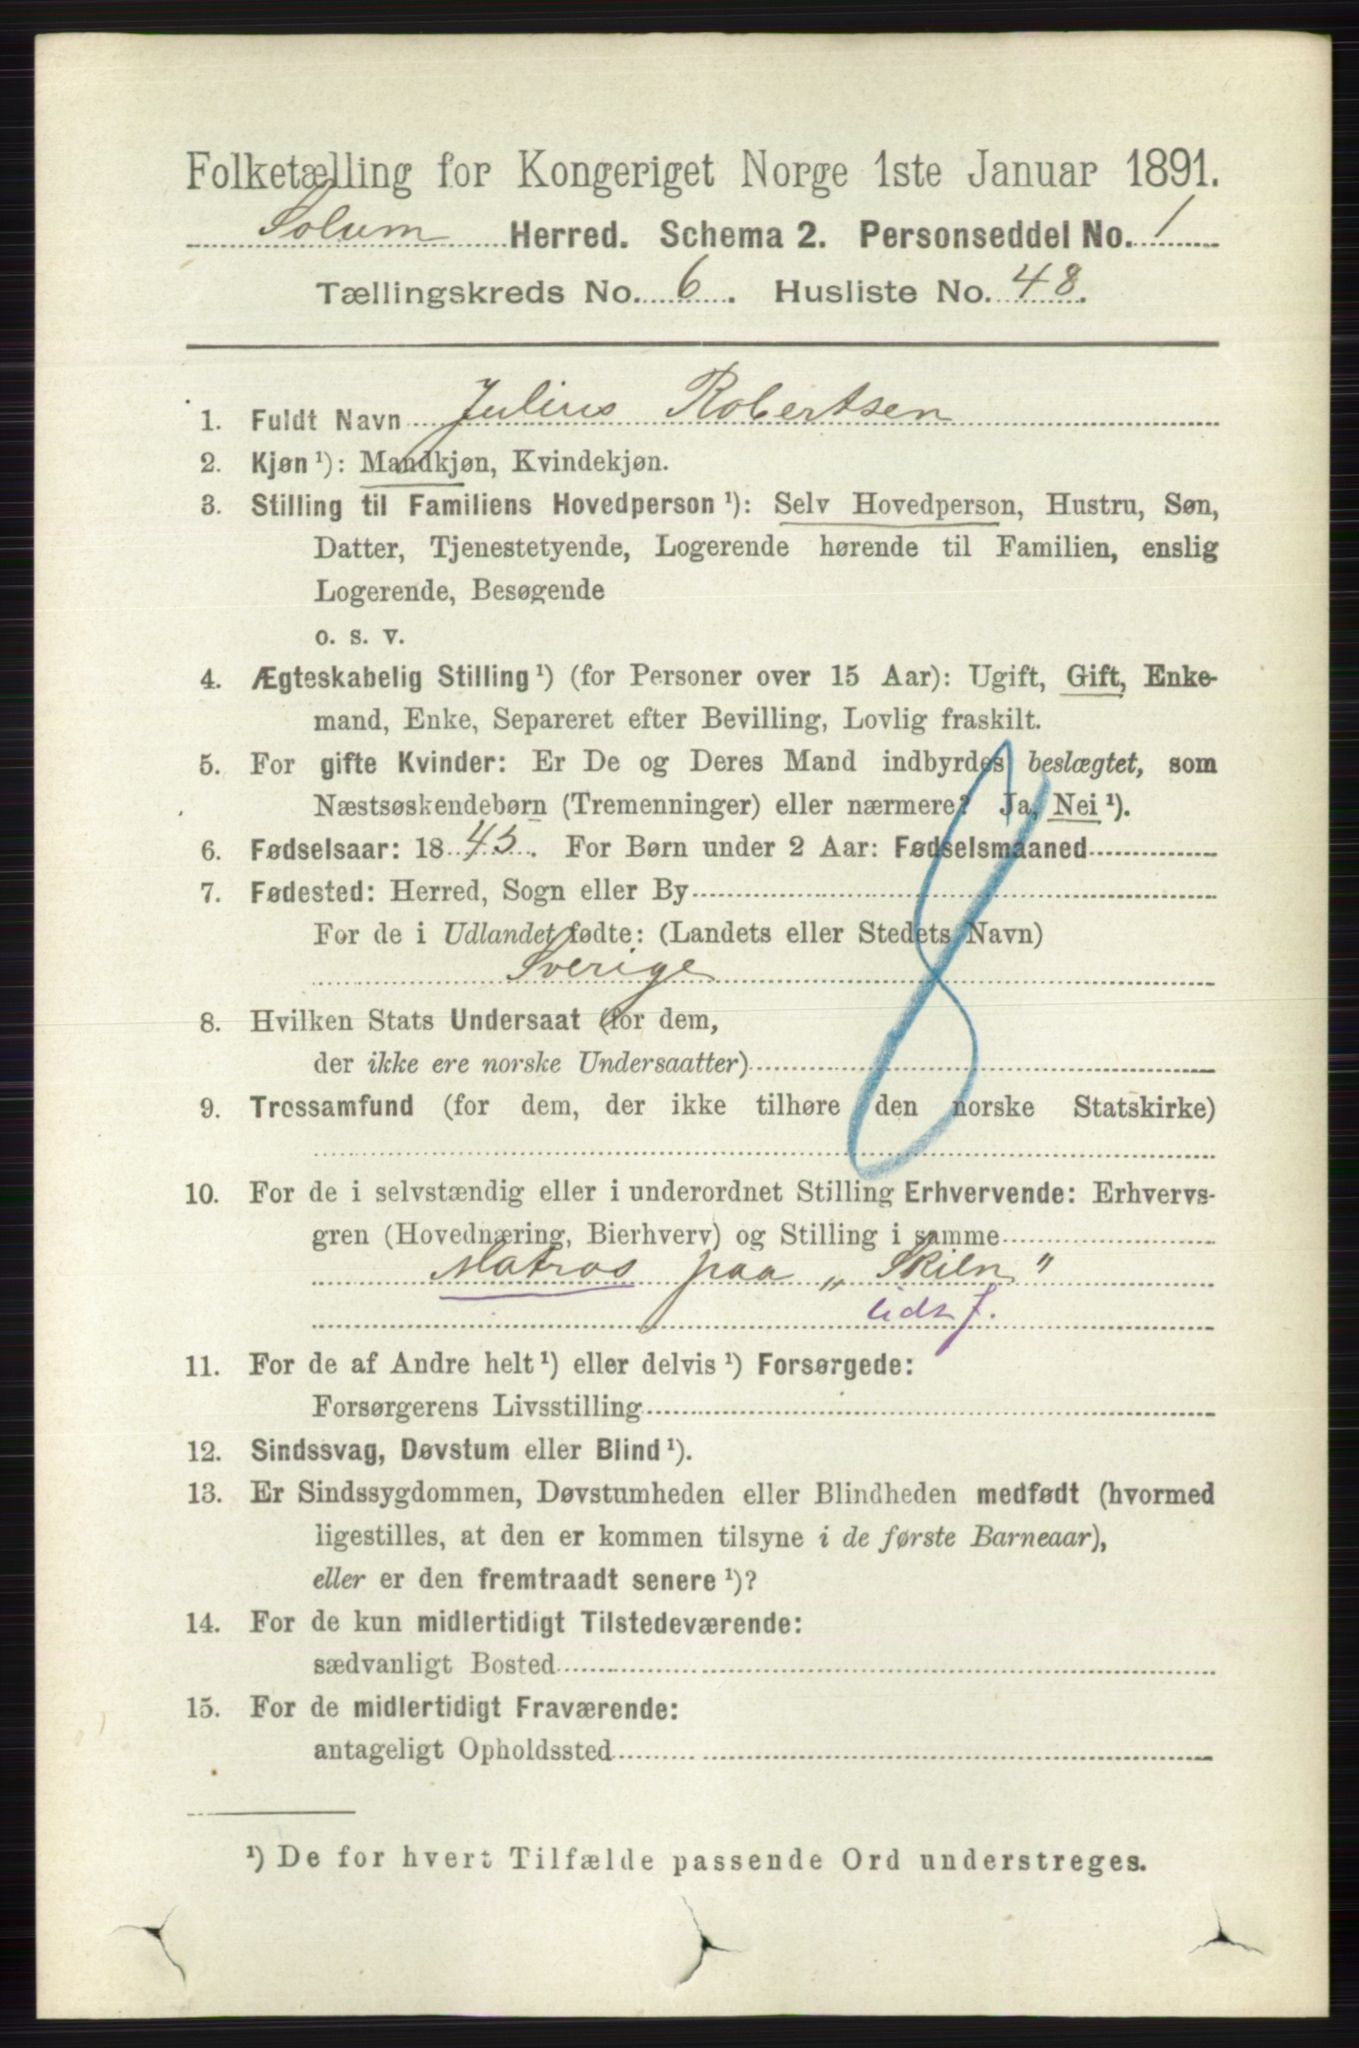 Folketælling for Kongeriget Norge 1ste Januar 1891.
Solum Herred. Schema 2. Personseddel No. 1
Tællingskreds No. 6. Husliste No. 48.
1. Fuldt Navn Julius Robertsen
2. Kjøn ¹): Mandkjøn, Kvindekjøn.
3. Stilling til Familiens Hovedperson ¹): Selv Hovedperson, Hustru, Søn,
Datter, Tjenestetyende, Logerende hørende til Familien, enslig
Logerende, Besøgende
o. s. v.
4. Ægteskabelig Stilling ¹) (for Personer over 15 Aar): Ugift, Gift, Enke-
mand, Enke, Separeret efter Bevilling, Lovlig fraskilt.
5. For gifte Kvinder: Er De og Deres Mand indbyrdes beslægtet, som
Næstsøskendebørn (Tremenninger) eller nærmere? Ja, Nei ¹).
6. Fødselsaar: 1845. For Børn under 2 Aar: Fødselsmaaned
7. Fødested: Herred, Sogn eller By
For de i Udlandet fødte: (Landets eller Stedets Navn)
Sverige
8. Hvilken Stats Undersaat (for dem,
der ikke ere norske Undersaatter)
9. Trossamfund (for dem, der ikke tilhøre den norske Statskirke)
10. For de i selvstændig eller i underordnet Stilling Erhvervende: Erhvervs-
gren (Hovednæring, Bierhverv) og Stilling i samme
Matros paa „Skien"
udsf.
11. For de af Andre helt ¹) eller delvis ¹) Forsørgede:
Forsørgerens Livsstilling
12. Sindssvag, Døvstum eller Blind ¹).
13. Er Sindssygdommen, Døvstumheden eller Blindheden medfødt (hvormed
ligestilles, at den er kommen tilsyne i de første Barneaar),
eller er den fremtraadt senere ¹)?
14. For de kun midlertidigt Tilstedeværende:
sædvanligt Bosted
15. For de midlertidigt Fraværende:
antageligt Opholdssted
¹) De for hvert Tilfælde passende Ord understreges.